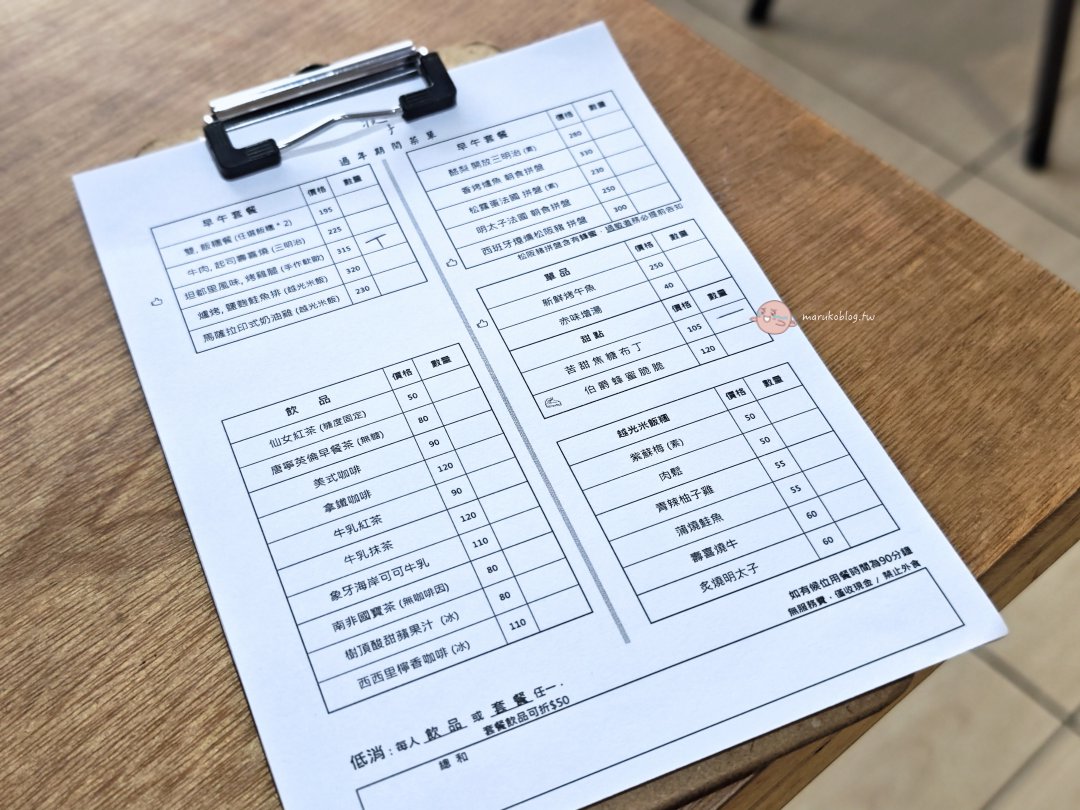 過年期間菜單
早午套餐 價格 數量
雙, 飯糰餐 (任選飯糰 * 2) 195
牛肉, 起司壽喜燒 (三明治) 225
坦都里風味, 烤雞腿 (手作軟歐) 315
爐烤, 鹽麴鮭魚排 (越光米飯) 320
馬薩拉印式奶油雞 (越光米飯) 230
飲品 價格 數量
仙女紅茶 (糖度固定) 50
唐寧英倫早餐茶 (無糖) 80
美式咖啡 90
拿鐵咖啡 120
牛乳紅茶 90
牛乳抹茶 120
象牙海岸可可牛乳 110
南非國寶茶 (無咖啡因) 80
樹頂酸甜蘋果汁 (冰) 80
西西里檸香咖啡 (冰) 110
早午套餐 價格 數量
酪梨 開放三明治 (素) 280
香烤爐魚 朝食拼盤 330
松露蛋法國 拼盤 (素) 230
明太子法國 朝食拼盤 250
西班牙燻腸松阪豬 拼盤 300
松阪豬拼盤含有蜂蜜，過敏者務必提前告知
單品 價格 數量
新鮮烤午魚 250
赤味增湯 40
甜點 價格 數量
苦甜焦糖布丁 105 一
伯爵蜂蜜脆脆 120
越光米飯糰 價格 數量
紫蘇梅 (素) 50
肉鬆 50
青辣柚子雞 55
蒲燒鮭魚 55
壽喜燒牛 60
炙燒明太子 60
如有候位用餐時間為90分鐘
無服務費．僅收現金 / 禁止外食
低消 : 每人 飲品 或 套餐 任一．
套餐飲品可折$50
總和
marukoblog.tw